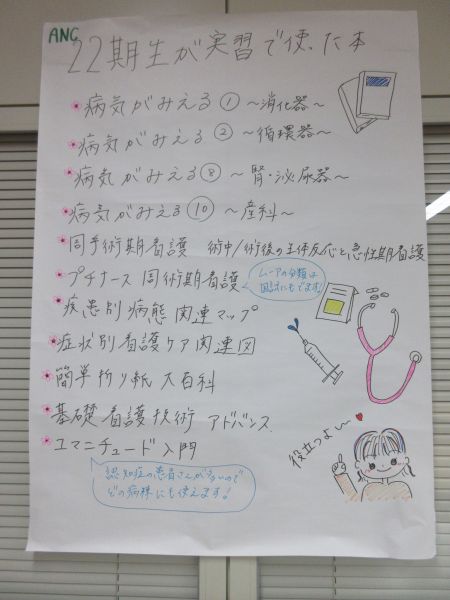 ANG
22期生が実習で使った本
病気がみえる① ～消化器～
病気がみえる② ～循環器～
病気がみえる⑧ ～腎・泌尿器～
病気がみえる⑩ ～産科～
周手術期看護 術中/術後の生体反応と急性期看護
プチナース 周術期看護
ムーアの分類は
国試にもでます!
疾患別 病態関連マップ
症状別看護ケア関連図
簡単折り紙 大百科
基礎看護技術 アドバンス
ユマニチュード入門
認知症の患者さんが多いので
どの病棟にも使えます!
役立つよぉ～